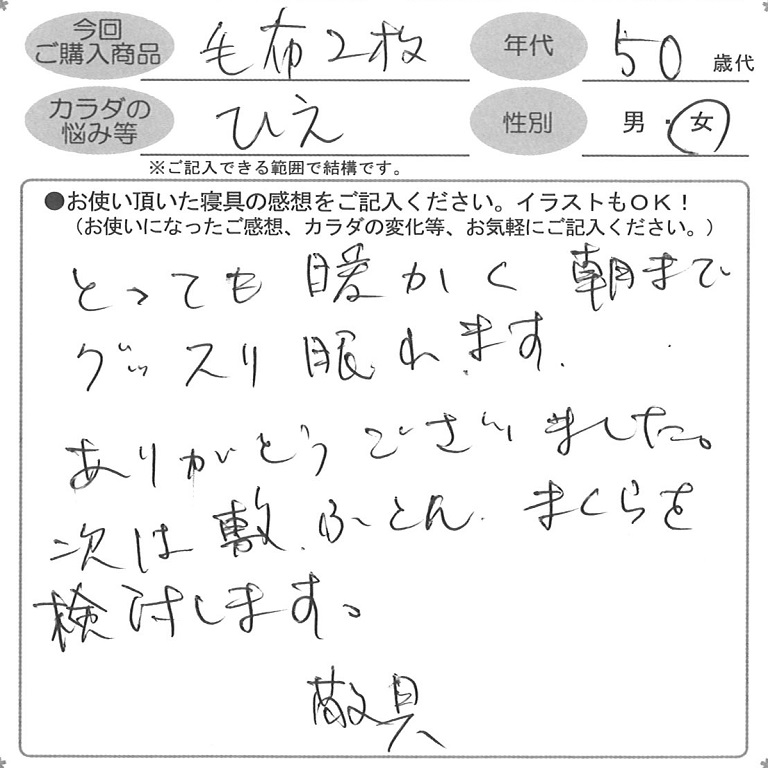 今回
ご購入商品 毛布2枚 年代 50 歳代
カラダの
悩み等 ひえ 性別 男・女
※ご記入できる範囲で結構です。
●お使い頂いた寝具の感想をご記入ください。イラストもOK!
(お使いになったご感想、カラダの変化等、お気軽にご記入ください。)
とっても暖かく朝まで
グッスリ眠れます.
ありがとうございました。
次は敷ふとん.まくらを
検討します。
敬具